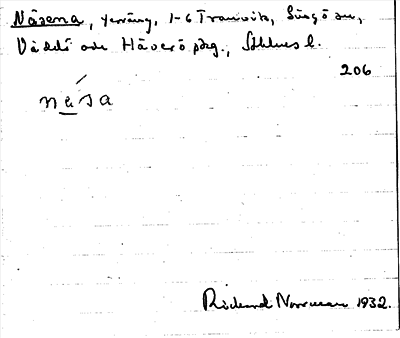 Näsena, terräng, 1-6 Tranvik, Singö sn,
Väddö och Häverö skg., Sthlms l.
206
nǻsa
Rickard Norrman 1932.